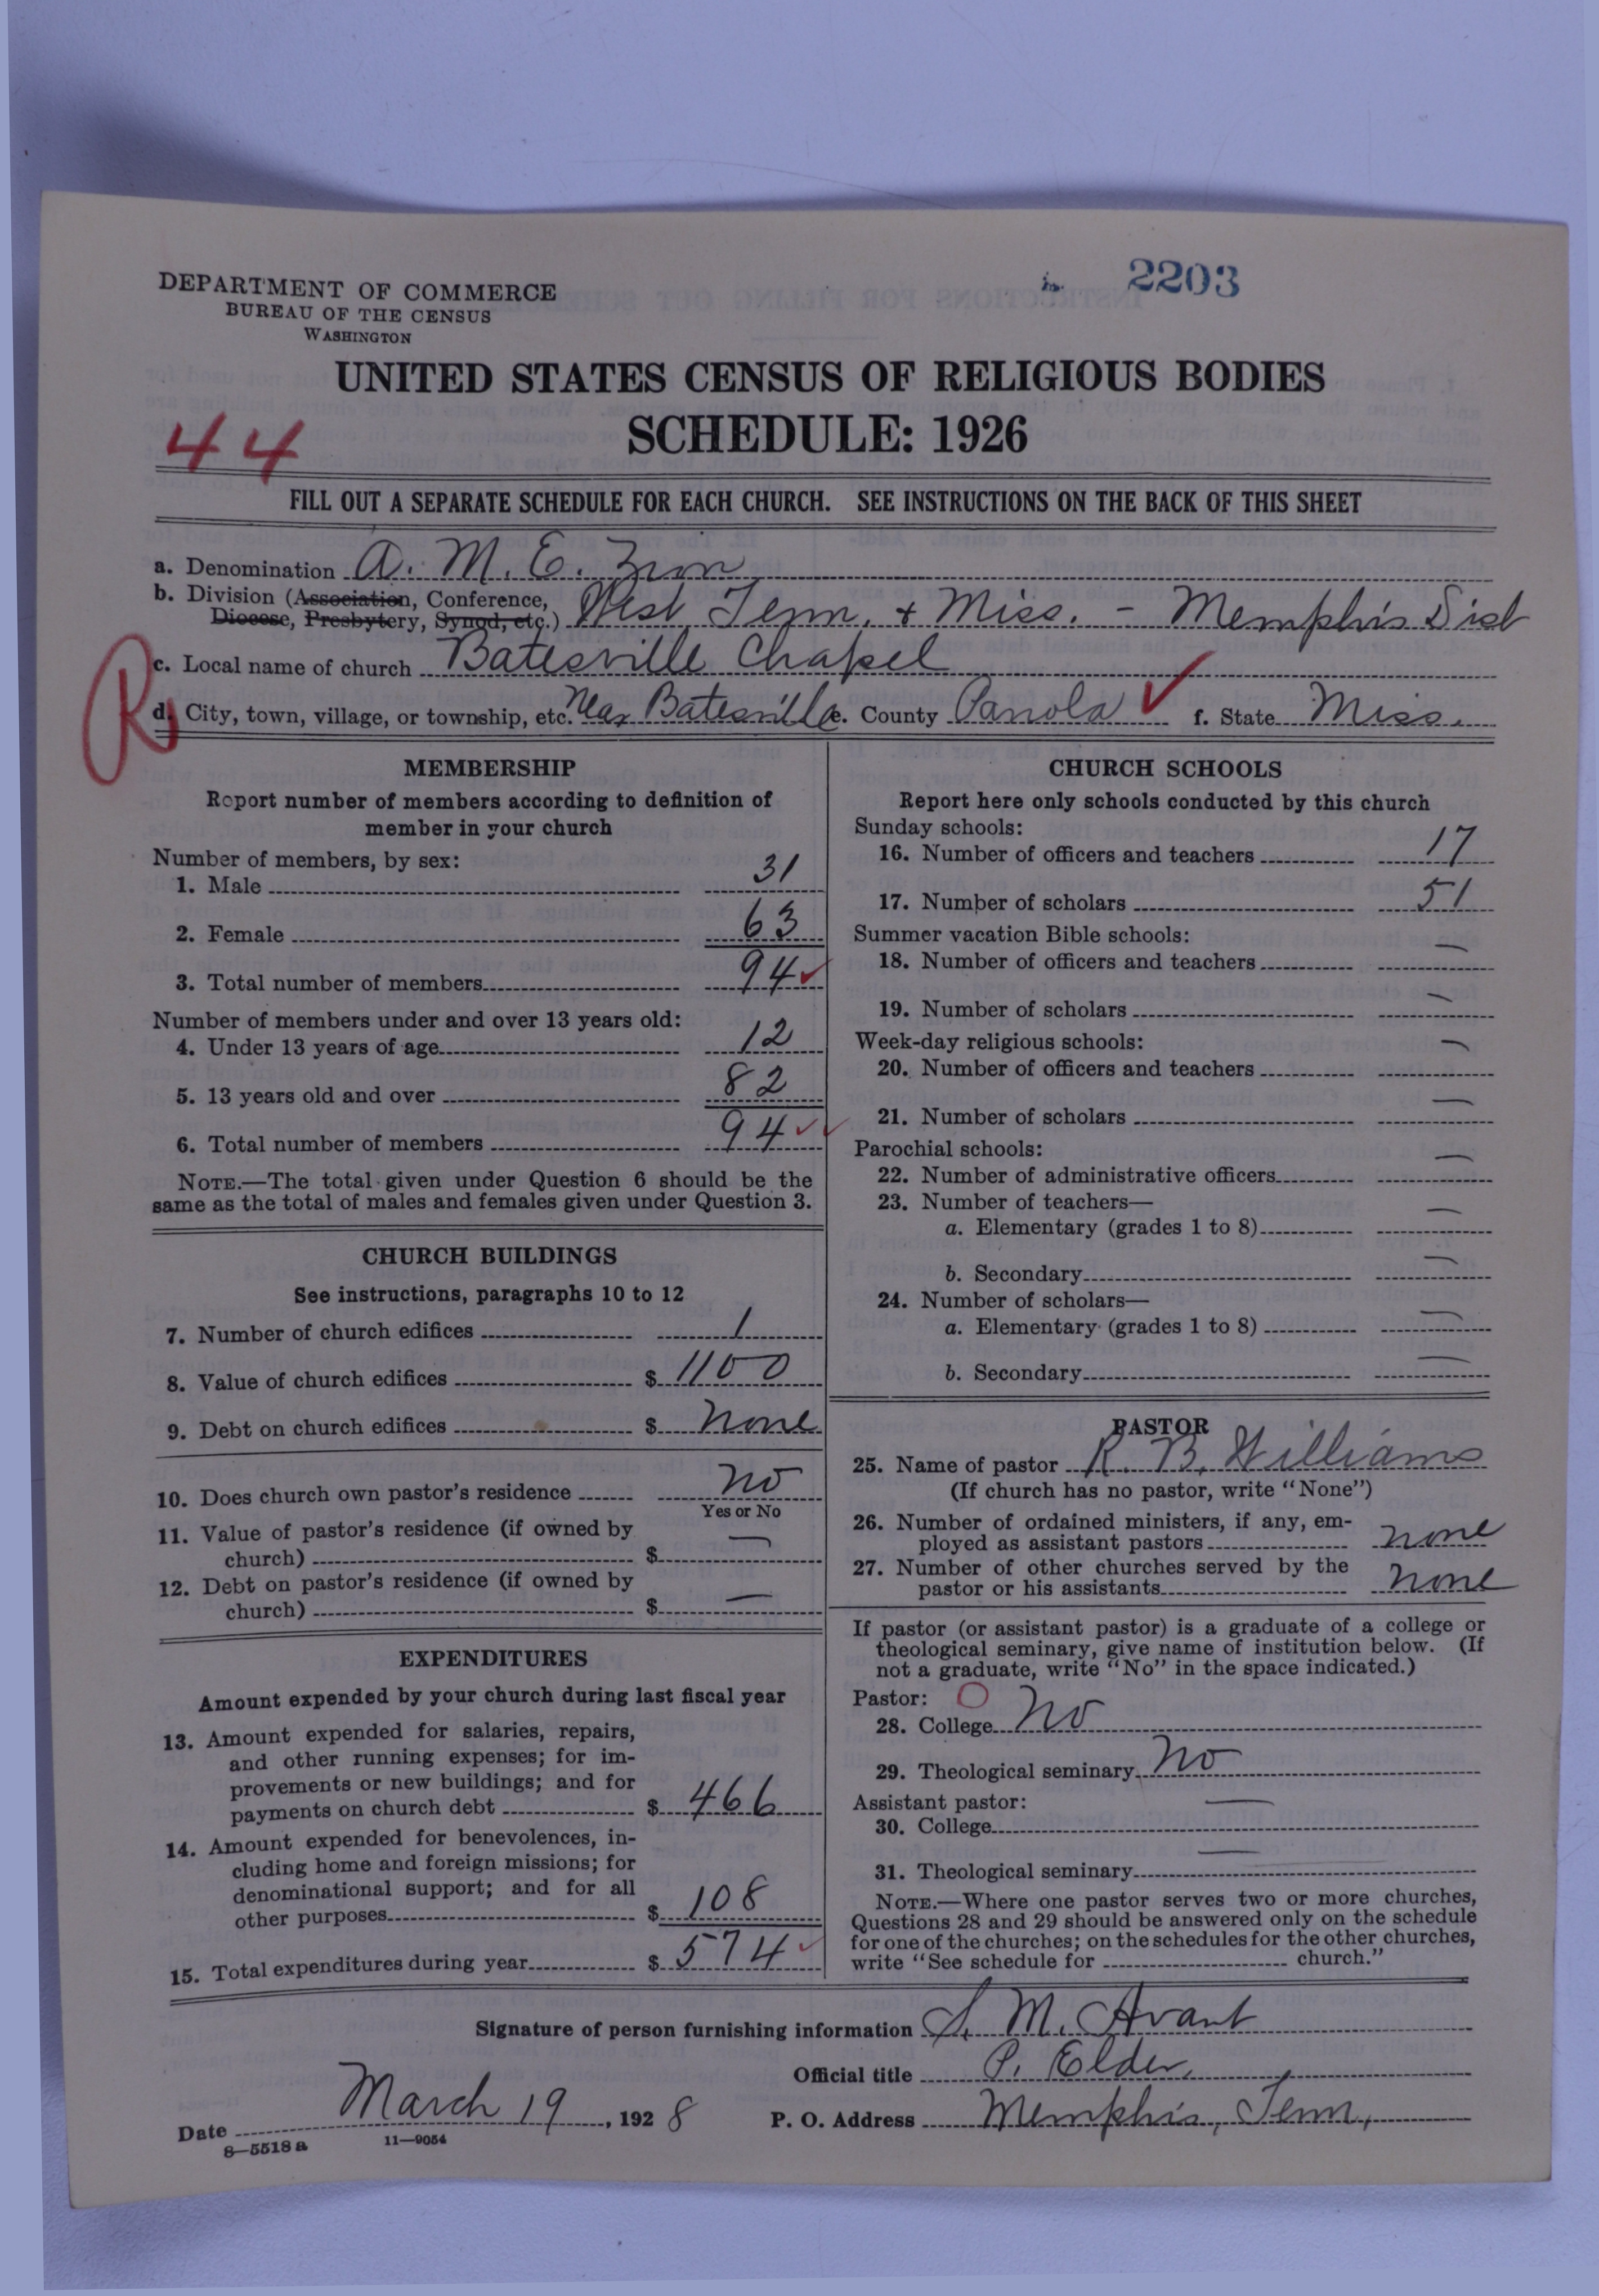 in. 2203
DEPARTMENT OF COMMERCE
BUREAU OF THE CENSUS
WASHINGTON
UNITED STATES CENSUS OF RELIGIOUS BODIES
SCHEDULE: 1926
44
FILL OUT A SEPARATE SCHEDULE FOR EACH CHURCH. SEE INSTRUCTIONS ON THE BACK OF THIS SHEET
a. Denomination A. M. E. Zion
b. Division (Association, Conference,
Diocese, Presbytery, Synod, etc.) West Tenn. + Miss. - Memphis Dist
R
c. Local name of church Batesville Chapel
d. City, town, village, or township, etc. Near Batesville e. County Panola ✓ f. State Miss.
MEMBERSHIP
Report number of members according to definition of
member in your church
Number of members, by sex:
1. Male 31
2. Female 63
3. Total number of members 94 ✓
Number of members under and over 13 years old:
4. Under 13 years of age 12
5. 13 years old and over 82
6. Total number of members 94 ✓✓
NOTE.—The total given under Question 6 should be the
same as the total of males and females given under Question 3.
CHURCH BUILDINGS
See instructions, paragraphs 10 to 12
7. Number of church edifices 1
8. Value of church edifices $ 1100
9. Debt on church edifices $ none
10. Does church own pastor's residence no
Yes or No
11. Value of pastor's residence (if owned by
church) $ —
12. Debt on pastor's residence (if owned by
church) $ —
EXPENDITURES
Amount expended by your church during last fiscal year
13. Amount expended for salaries, repairs,
and other running expenses; for im-
provements or new buildings; and for
payments on church debt $ 466
14. Amount expended for benevolences, in-
cluding home and foreign missions; for
denominational support; and for all
other purposes $ 108
15. Total expenditures during year $ 574 ✓
CHURCH SCHOOLS
Report here only schools conducted by this church
Sunday schools:
16. Number of officers and teachers 17
17. Number of scholars 51
Summer vacation Bible schools:
18. Number of officers and teachers —
19. Number of scholars —
Week-day religious schools:
20. Number of officers and teachers —
21. Number of scholars —
Parochial schools:
22. Number of administrative officers —
23. Number of teachers—
a. Elementary (grades 1 to 8) —
b. Secondary —
24. Number of scholars—
a. Elementary (grades 1 to 8) —
b. Secondary —
PASTOR
25. Name of pastor R. B. Williams
(If church has no pastor, write "None")
26. Number of ordained ministers, if any, em-
ployed as assistant pastors none
27. Number of other churches served by the
pastor or his assistants none
If pastor (or assistant pastor) is a graduate of a college or
theological seminary, give name of institution below. (If
not a graduate, write "No" in the space indicated.)
Pastor: O
28. College no
29. Theological seminary no
Assistant pastor:
30. College —
31. Theological seminary —
NOTE.—Where one pastor serves two or more churches,
Questions 28 and 29 should be answered only on the schedule
for one of the churches; on the schedules for the other churches,
write "See schedule for church."
Signature of person furnishing information S. M. Avant
Official title P. Elder,
Date March 19, 1928 P. O. Address Memphis, Tenn,
8—5518 a 11—9054